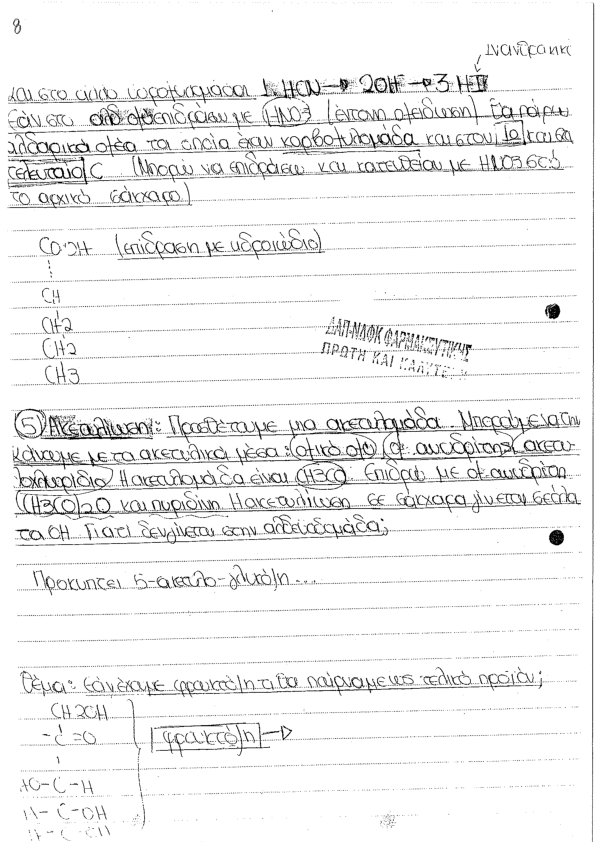 8
και στο είδος υδροξυλομάδα 1 HCN → 2OH → 3 HI
Εάν στο επιδράσω με HNO3 (έντονη οξείδωση) θα πάρω
αλδαρικά οξέα τα οποία έχουν καρβοξυλομάδα και στον 1ο και στο
τελευταίο C (Μπορώ να επιδράσω και κατευθείαν με HNO3 στο
το αρχικό σάκχαρο)
COOH (επίδραση με υδροιώδιο)
CH
CH2
CH2
CH3
ΔΑΠ-ΝΔΦΚ ΦΑΡΜΑΚΕΥΤΙΚΗΣ
ΠΡΩΤΗ ΚΑΙ
5 Ακετυλίωση: Προσθέτουμε μια ακετυλομάδα. Μπορούμε να την
κάνουμε με τα ακετυλικά μέσα: οξικό οξύ, οξ. ανυδρίτης, ακετυ-
λοχλωρίδιο Η ακετυλομάδα είναι CH3CO. Επιδρώ με οξ. ανυδρίτη
(CH3CO)2O και πυριδίνη Η ακετυλίωση σε σάκχαρα γίνεται σε όλα
τα OH. Γιατί δεν γίνεται στην αλδεϋδομάδα;
Προκύπτει 5-ακετυλο-γλυκόζη...
Θέμα: Εάν έχουμε φρουκτόζη τι θα παίρναμε ως τελικό προϊόν;
CH2OH
-C=O
φρουκτόζη →
HO-C-H
H-C-OH
H-C-OH